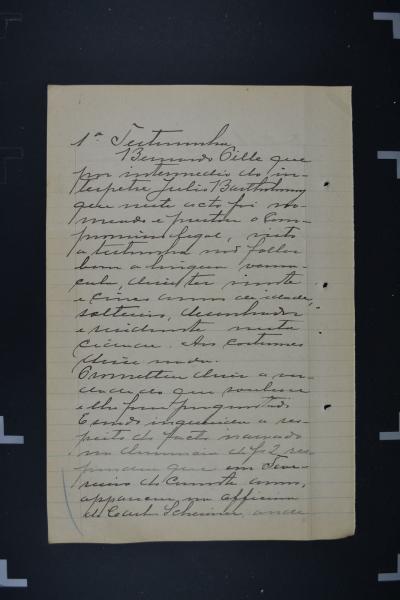 1ª Testemunha
Bernardo Cille que
por intermedio do in-
terprete Julio Bartholomy
que neste acto foi no-
meado e prestou o Com-
promisso legal, visto
a testemunha não fallar
bem a lingua verna-
cula, disse ter vinte
e cinco annos de idade,
solteiro, desenhador
e residente nesta
Cidade. Aos costumes
disse nada.
Prometteu dizer a ver-
dade do que soubesse
e lhe fosse perguntado.
E sendo inquirida a res-
peito do facto narrado
na denuncia de fs 2 res-
pondeu que em Feve-
reiro do corrente anno,
appareceu na officina
de Carl onde